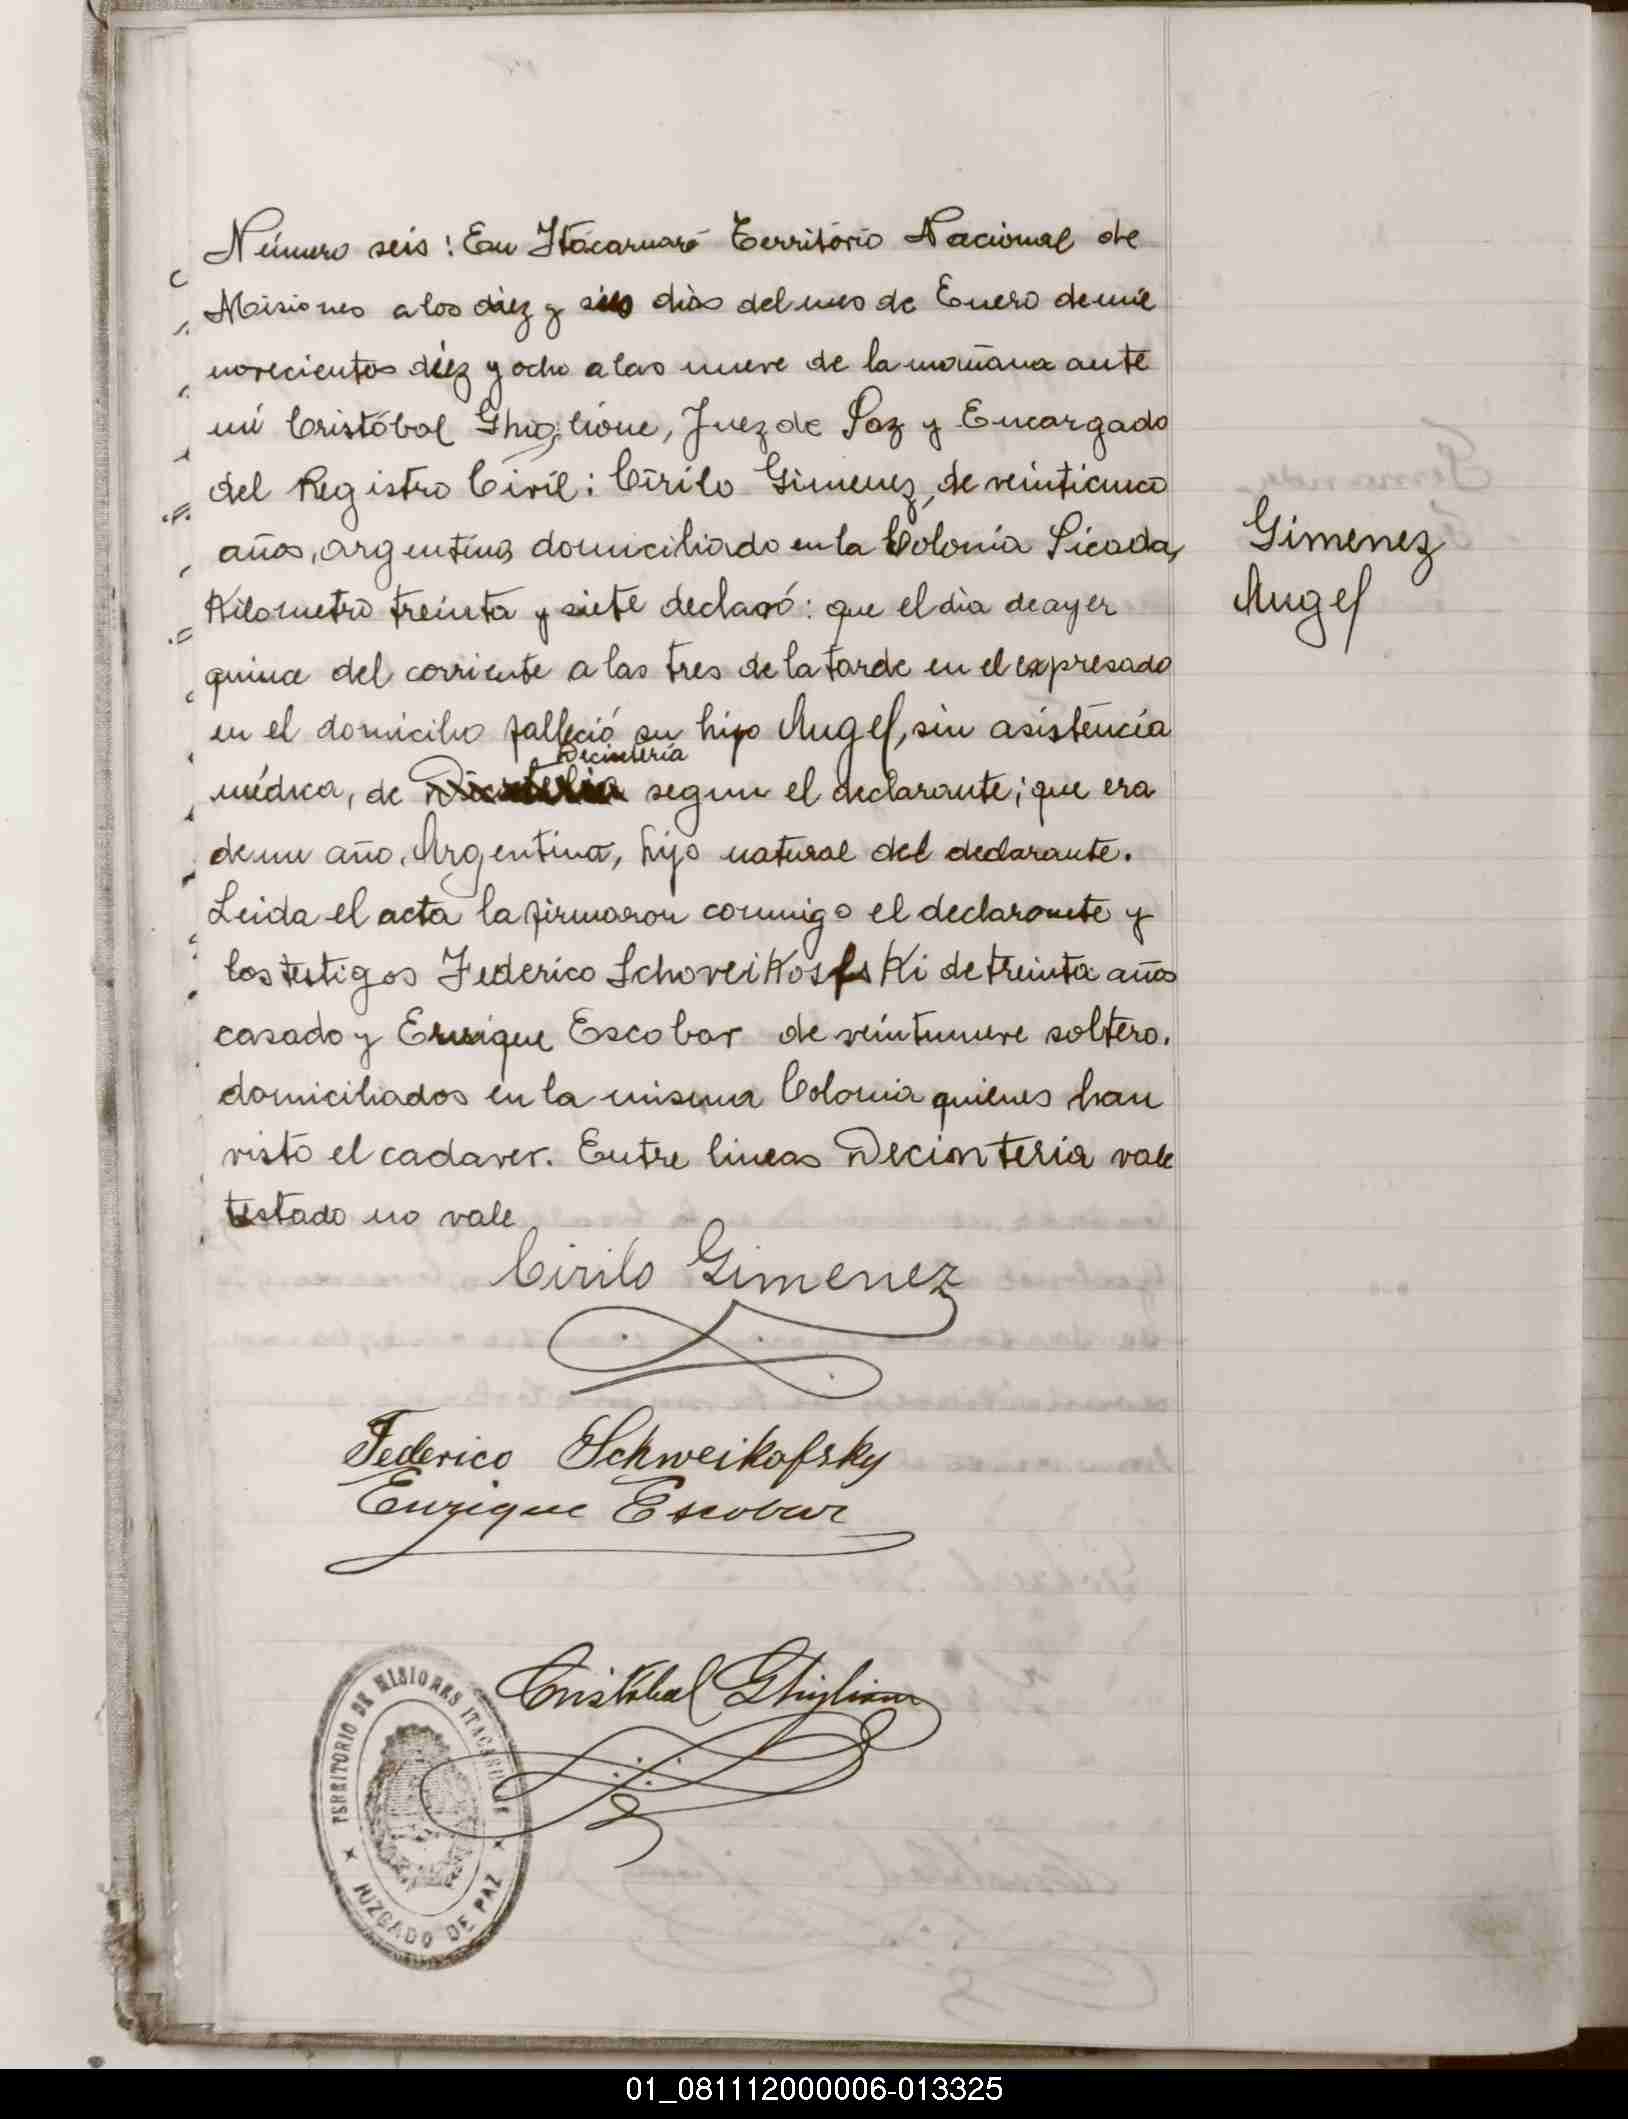 Número seis: En Itácaruaré Território Nacional de
Misiones a los diez y seis dias del mes de Enero de mil
novecientos diez y ocho a las nueve de la mañana ante
mí Cristóbal Ghiglione, Juez de Paz y Encargado
del Registro Civil: Cirilo Gimenez, de veinticinco
años, argentino, domiciliado en la Colonia Picada,
Kilometro treinta y siete declaró: que el dia de ayer
quince del corriente a las tres de la tarde en el expresado
en el domicilio falleció su hijo Angel, sin asistencia
Decinteria
médica, de segun el declarante; que era
de un año, Argentina, hijo natural del declarante.
Leida el acta la firmaron conmigo el declarante y
los testigos Federico Schoveikosfski de treinta años
casado y Enrique Escobar de veintinueve soltero.
domiciliados en la misma Colonia quienes han
visto el cadaver. Entre lineas Decinteria vale
testado no vale
Gimenez
Angel
Cirilo Gimenez
Federico Schweikofsky
Enrique Escobar
Cristobal Ghiglione
TERRITORIO DE MISIONES ITACARUARE
JUZGADO DE PAZ
01_081112000006-013325